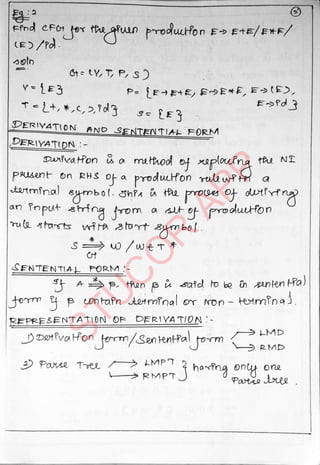 Eg : 2
⑤
Find CFG for the given production E → E+E/E*E/
(E) /id.
soln
G = (V, T, P, S)
V = {E}
P = {E→E+E, E→E*E, E→(E),
E→id}
T = {+, *, (, ), id}
S = {E}
DERIVATION AND SENTENTIAL FORM
DERIVATION :-
Derivation is a method of replacing the NT
present on RHS of a production rule with a
terminal symbol. This is the process of deriving
an input string from a set of production
rule starts with start symbol.
S ⇒ w / w ∈ T *
*
G
SENTENTIAL FORM :-
If A ⇒ β, then β is said to be in sentential
*
form if β contain terminal or non - terminal.
REPRESENTATION OF DERIVATION :-
1) Derivation form / Sentential form → LMD
→ RMD
2) Parse Tree → LMPT } having only one
→ RMPT parse tree.
STUCOR APP